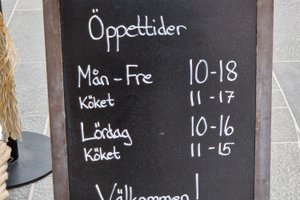 Öppettider
Mån - Fre 10-18
Köket 11-17
Lördag 10-16
Köket 11-15
Välkommen!